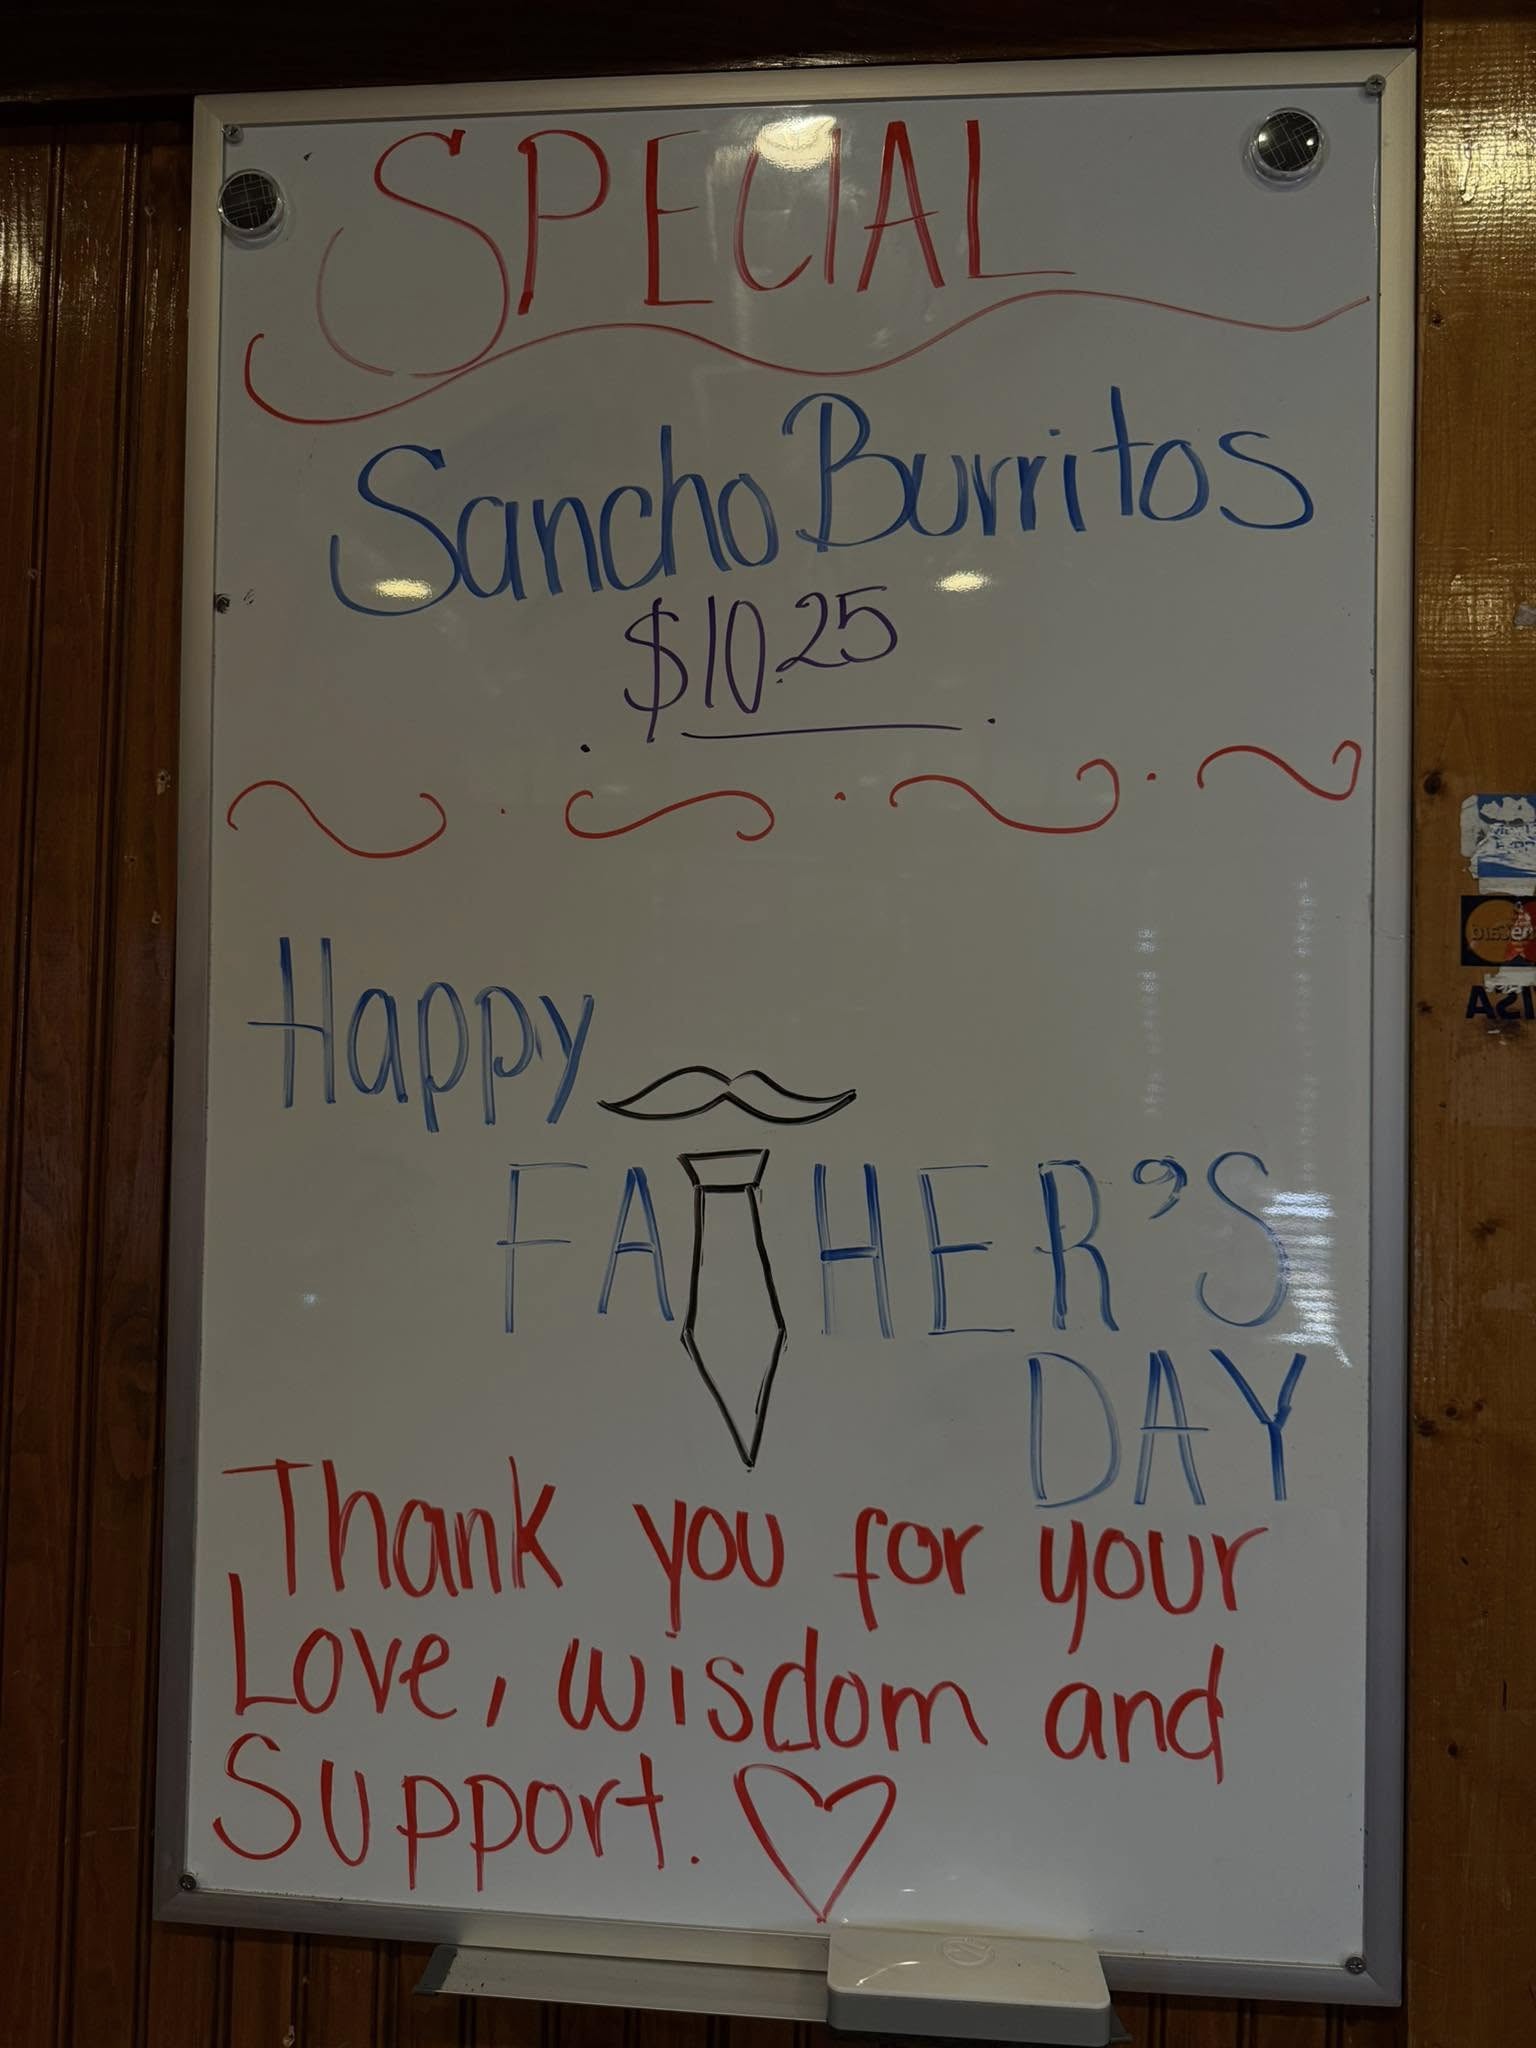 SPECIAL
Sancho Burritos
$10.25
Happy
FATHER'S
DAY
Thank you for your
Love, wisdom and
Support.
VISA